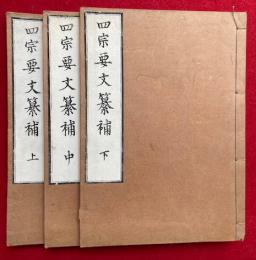 四宗要文纂補 上
四宗要文纂補 中
四宗要文纂補 下